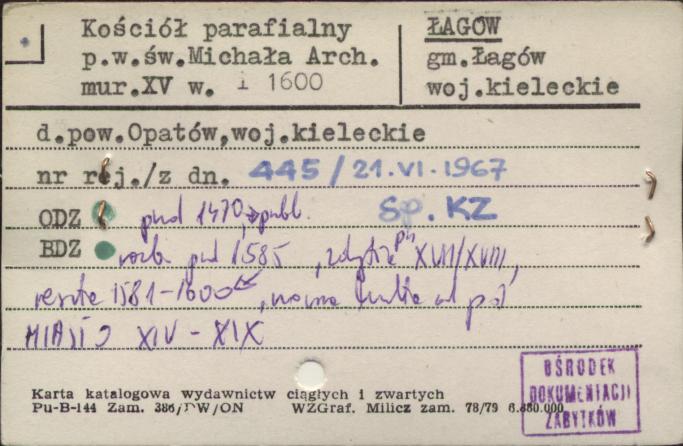 Kościół parafialny
p.w.św.Michała Arch.
mur.XV w. i 1600
ŁAGÓW
gm.Łagów
woj.kieleckie
d.pow.Opatów,woj.kieleckie
nr rej./z dn. 445/21.VI.1967
ODZ 1470, Sp. KZ
BDZ 1585 XVII/XVIII,
1581-1600
MIASTO XIV - XIX
OŚRODEK
DOKUMENTACJI
ZABYTKÓW
Karta katalogowa wydawnictw ciągłych i zwartych
Pu-B-144 Zam. 386/DW/ON WZGraf. Milicz zam. 78/79 6.880.000